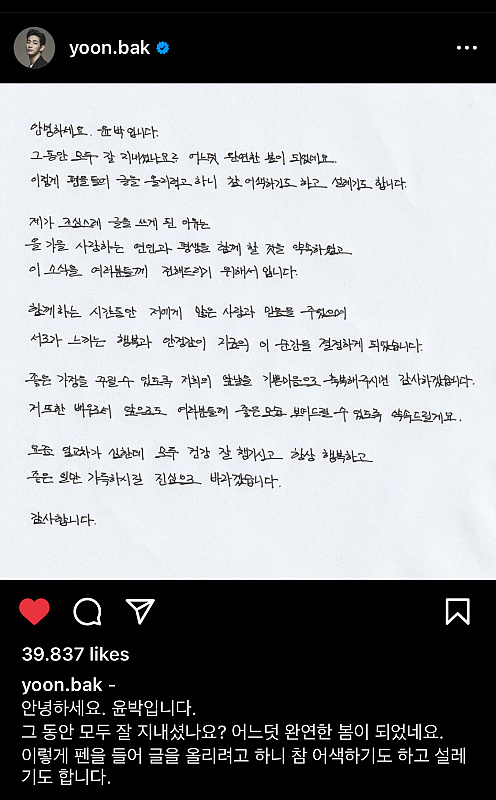 yoon.bak
안녕하세요. 윤박입니다.
그동안 모두 잘 지내셨나요? 어느덧 완연한 봄이 되었네요.
이렇게 펜을들어 글을 올리려고 하니 참 어색하기도 하고 설레기도 합니다.
제가 조심스레 글을 쓰게 된 이유는
올 가을 사랑하는 연인과 평생을 함께 할 것을 약속하였고
이 소식을 여러분들께 전해드리기 위해서 입니다.
함께하는 시간동안 저에게 많은 사랑과 믿음을 주었으며
서로가 느끼는 행복과 안정감이 지금의 이 순간을 결정하게 되었습니다.
좋은 가정을 꾸릴수 있도록 저희의 앞날을 기쁜마음으로 축복해주시면 감사하겠습니다.
저 또한 배우로서 앞으로도 여러분들께 좋은모습 보여드릴 수 있도록 약속드릴게요.
요즘 일교차가 심한데 모두 건강 잘 챙기시고 항상 행복하고
좋은 일만 가득하시길 진심으로 바라겠습니다.
감사합니다.
39.837 likes
yoon.bak -
안녕하세요. 윤박입니다.
그 동안 모두 잘 지내셨나요? 어느덧 완연한 봄이 되었네요.
이렇게 펜을 들어 글을 올리려고 하니 참 어색하기도 하고 설레
기도 합니다.